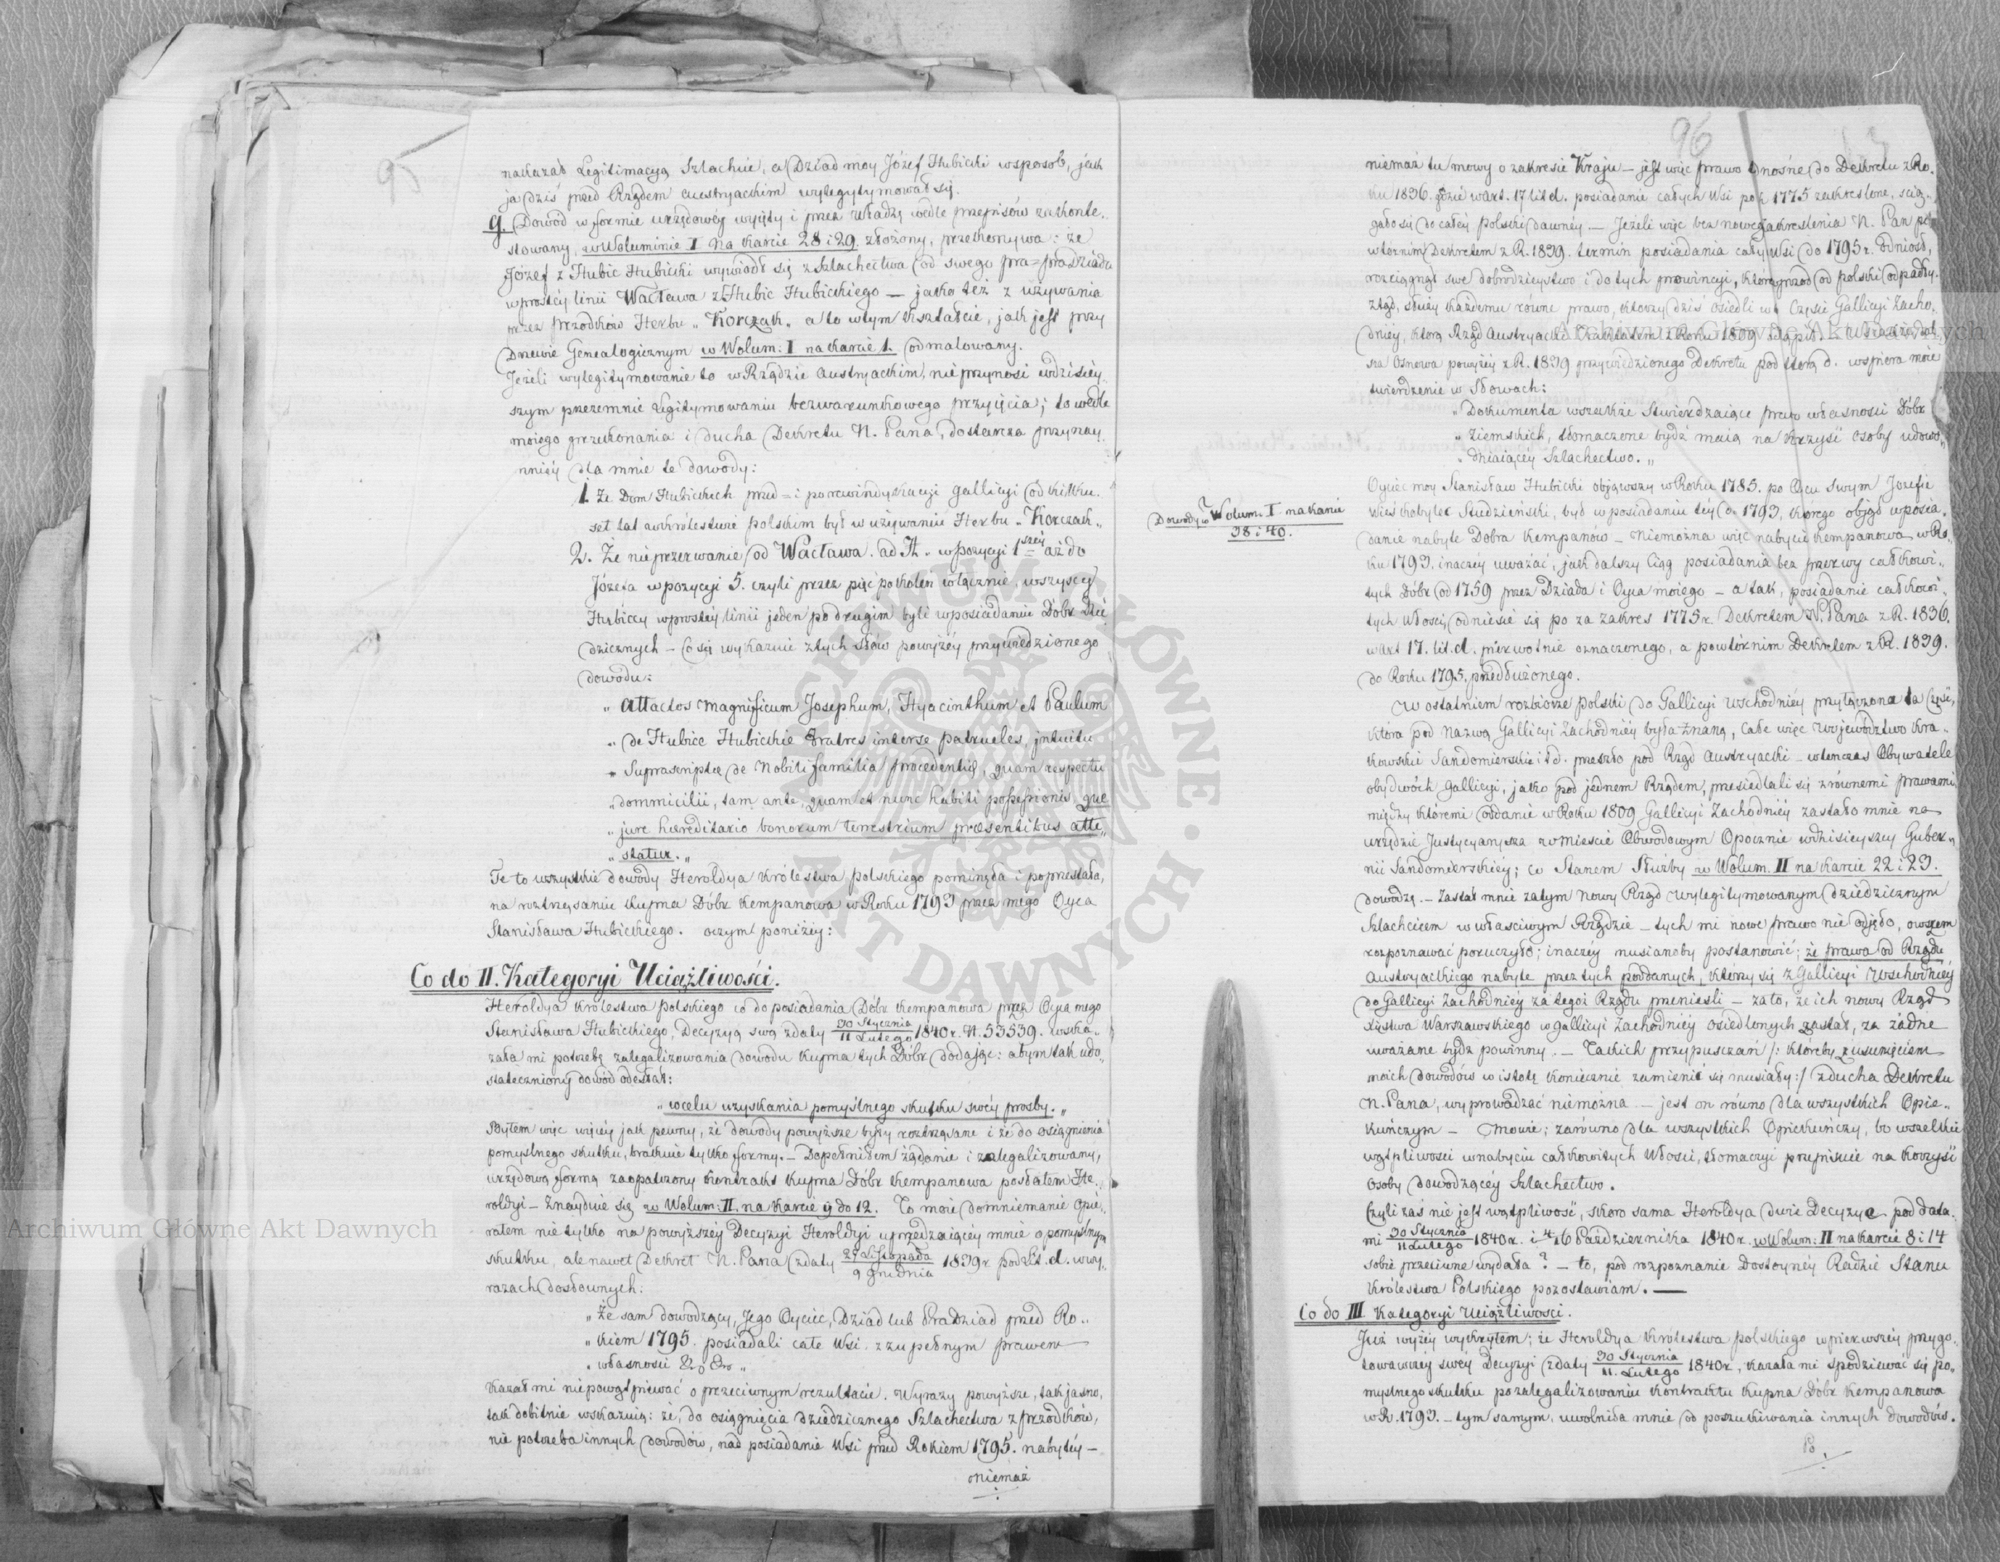 nakazał Legitimacyą Szlachcie, a Dziad moy Józef Hubicki wsposob, jak
ja dziś przed Rządem austryackim wylegitymował się.
g. Dowód w formie urzędowéy wyięty i przez Władzę wedle przepisów zakonte„
stowany, w Woluminie I na karcie 28 i 29. złożony, przekonywa: że
Józef z Hubic Hubicki wywiódł się z Szlachectwa od swego pra=pradziada
w prostéy linii Wacława z Hubic Hubickiego — jako też z używania
przez przodków Herbu „Korczak„ a to w tym kształcie, jak jest przy
Drzewie Genealogicznym w Wolum: I na karcie 1. odmalowany.
Jeżeli wylegitymowanie to w Rządzie austryackim, nie przynosi wdzisiéy„
szym przezemnie legitymowaniu bezwarunkowego przyięcia; to wedle
moiego przekonania i ducha Dekretu N. Pana, dostarcza przynay„
mniéy dla mnie te dowody:
1. Że Dom Hubickich przed= i po rewindykacyi Gallicyi od kilku„
set lat w królestwie polskim był w używaniu Herbu „Korczak„
2. Że nieprzerwanie od Wacława ad A. w pozycyi 1széy aż do
Józefa w pozycyi 5. czyli przez pięć pokoleń włącznie, wszyscy
Hubiccy w prostéy linii jeden po drugim byli w posiadaniu Dóbr Dzie
dzicznych — co się wykazuie z tych słów powyżéy przywiedzionego
dowodu:
„ Attactos Magnificum Josephum, Hyacinthum et Paulum
„ de Hubice Hubickie Fratres interse patrueles, intuitu
„ Suprascriptæ de Nobili familia procedentiæ, quam respectu
„ dommicilii, tam ante quam et nunc habiti possessionis que
„ jure hæreditario bonorum terrestrium præsentibus atte„
„ statur. „
Te to wszystkie dowody Heroldya królestwa polskiego pominęła i poprzestała,
na roztrząsaniu kupna Dóbr Kempanowa w Roku 1793 przez mego Oyca
Stanisława Hubickiego. oczym poniżéy:
Co do II. Kategoryi Uciążliwości.
Heroldya królestwa polskiego co do posiadania Dóbr Kempanowa przez Oyca mego
Stanisława Hubickiego, Decyzyą swą z daty 30 Stycznia / 11 Lutego 1840 r. N. 53539. wska„
zała mi potrzebę zalegalizowania dowodu kupna tych Dóbr dodając: abym tak udo„
stateczniony dowód odesłał:
„ w celu uzyskania pomyślnego skutku swéy prosby. „
Byłem więc więcéy jak pewny, że dowody powyższe były roztrząsane i że do osiągnienia
pomyślnego skutku, brakuie tylko formy. — Dopełniłem żądanie i zalegalizowany,
urzędową formą zaopatrzony kontrakt kupna Dóbr Kempanowa posłałem He„
roldyi — znayduie się w Wolum: II. na karcie 9 do 12. To moie domniemanie opie„
rałem nie tylko na powyższéy Decyzyi Heroldyi uprzedzaiącéy mnie o pomyślnym
skutku, ale nawet Dekret N. Pana z daty 27 Listopada / 9 Grudnia 1839 r. pod Lit. d. w wy„
razach dosłownych:
„ Że sam dowodzący, Jego Oyciec, Dziad lub Pradziad przed Ro„
„ kiem 1795. posiadali całe Wsi z zupełnym prawem
„ własności &c &c „
kazał mi niepowątpiewać o przeciwnym rezultacie. Wyrazy powyższe, tak jasno,
tak dobitnie wskazuią: że, do osiągnięcia dziedzicznego Szlachectwa z przodków,
nie potrzeba innych dowodów, nad posiadanie Wsi przed Rokiem 1795. nabytéy —
niemaż
96
niemaż tu mowy o zakresie Kraju — jest więc prawo odnośne do Dekretu z Ro„
ku 1836. gdzie w art. 17 lit d. posiadanie całych Wsi po r. 1775 zakreslone, scią„
gało się do całéy Polski dawnéy — Jeżeli więc bez nowego zakreslenia N. Pan po„
wtórnim Dekretem z R. 1839. termin posiadania całéy Wsi do 1795 r. odniosł,
rozciągnął swe dobrodzieystwo i do tych prowincyi, które przod od polski odpadły.
ztąd, służy każdemu równe prawo, ktorzy dziś osiedli w Części Gallicyi Zacho„
dniéy, którą Rząd Austryacki Traktatem z Roku 1809 odstąpił.
sza osnowa powyżéy z R. 1839 przywiedzionego Dekretu pod literą d. wspiera moie
twierdzenie w Słowach:
„ Dokumenta wszakże stwierdzaiące prawo własności Dóbr
„ ziemskich, tłomaczone bydź maią na korzyść osoby udowo„
„ dniaiącéy Szlachectwo. „
Oyciec moy Stanisław Hubicki objąwszy w Roku 1785. po Oycu swym Jozefie
Wieś Kobylec Sudzieński, był w posiadaniu téy do 1793, którego objął w posia„
danie nabyte Dobra Kempanów — Niemożna więc nabycie Kempanowa w Ro„
ku 1793. inaczéy uważać, jak dalszy ciąg posiadania bez przerwy całkowi„
tych Dóbr od 1759 przez Dziada i Oyca moiego — a tak, posiadanie całkowi„
tych Włości, odniesie się po za zakres 1775 r. Dekretem N. Pana z R. 1836.
w art 17. lit. d. pierwotnie oznaczonego, a powtórnim Dekretem z R. 1839.
do Roku 1795. przedłużonego.
Dowody w Wolum: I. na karcie
38 i 40.
W ostatniem rozbiorze Polski do Gallicyi Wschodniéy przyłączona ta część,
która pod nazwą Gallicyi Zachodniéy była znaną, całe więc Województwo Kra„
kowskie Sandomierskie i t d. przeszło pod Rząd Austryacki — wtenczas Obywatele
obydwóch Gallicyi, jako pod jednem Rządem, przesiedlali się z równemi prawami,
między któremi oddanie w Roku 1809 Gallicyi Zachodniéy zastało mnie na
urzędzie Justycyaryusza w mieście Obwodowym Opocznie w dzisieyszéy Guber„
nii Sandomierskiéy; co Stanem Służby w Wolum. II na karcie 22 i 23.
dowodzę. — Zastał mnie zatym nowy Rząd wylegitymowanym dziedzicznym
Szlachcicem w właściwym Rządzie — tych mi nowe prawo nie odjęło, owszem
rozpoznawać poruczyło; inaczéy musianoby postanowić; że prawa od Rządu
Austryackiego nabyte przez tych poddanych, którzy się z Gallicyi Wschodniéy
do Gallicyi Zachodniéy za tegoż Rządu przeniesli — za to, że ich nowy Rząd
Xięstwa Warszawskiego w Gallicyi Zachodniéy osiedlonych zastał, za żadne
uważane bydź powinny. — Takich przypuszczań /: któreby z usunięciem
moich dowodów w istotę koniecznie zamienić się musiały :/ z ducha Dekretu
N. Pana, wyprowadzać niemożna — jest on równo dla wszystkich Opie„
kuńczym — Mówię; zarówno dla wszystkich Opiekuńczy, bo wszelkie
wątpliwości w nabyciu całkowitych Włości, tłomaczyi przepisuie na korzyść
osoby dowodzącéy Szlachectwo.
Czyli zaś nie jest wątpliwość, skoro sama Heroldya dwie Decyzye pod data„
mi 30 Stycznia / 11 Lutego 1840 r. i 4/16 Października 1840 r. w Wolum: II na karcie 8 i 14
sobie przeciwne wydała? — to, pod rozpoznanie Dostoynéy Radzie Stanu
Królestwa Polskiego pozostawiam. —
Co do III Kategoryi Uciążliwosci.
Już wyżéy wykryłem; że Heroldya królestwa polskiego w pierwszéy przygo„
towawczéy swéy Decyzyi z daty 30 Stycznia / 11. Lutego 1840 r, kazała mi spodziewać się po„
myślnego skutku po zalegalizowaniu kontraktu kupna Dóbr Kempanowa
w R. 1793. — tym samym, uwolniła mnie od poszukiwania innych dowodów.
Po
ARCHIWUM GŁÓWNE AKT DAWNYCH
Archiwum Główne Akt Dawnych
Archiwum Główne Akt Dawnych